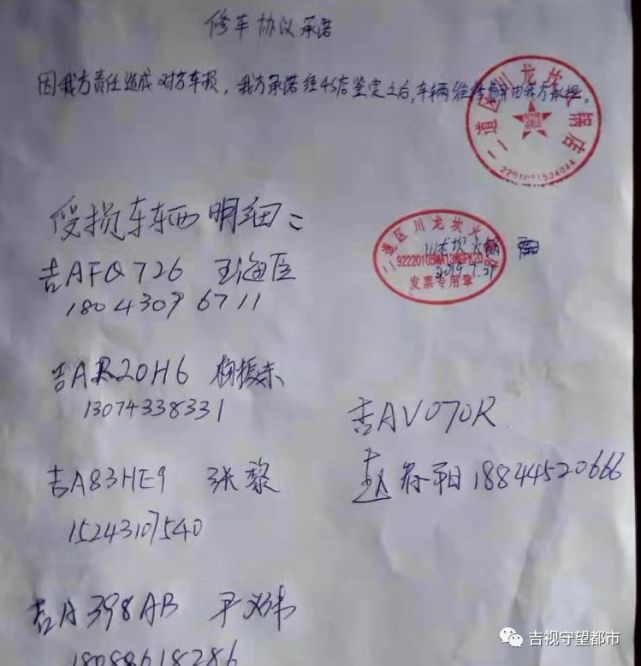 修车协议承诺
因我方责任造成对方车损，我方承诺经4S店鉴定之后，车辆维修费用由我方承担。
二道区川龙坎火锅店
2201051504044
受损车辆明细：
二道区川龙坎火锅
发票专用章
2019.7.29
吉AFQ726
18043096711
吉AR20H6 杨振东
13074338331
吉AV070R
赵 18844520666
吉A83HE9 张黎
15243107540
吉A398AB 尹
18088618286
吉视守望都市